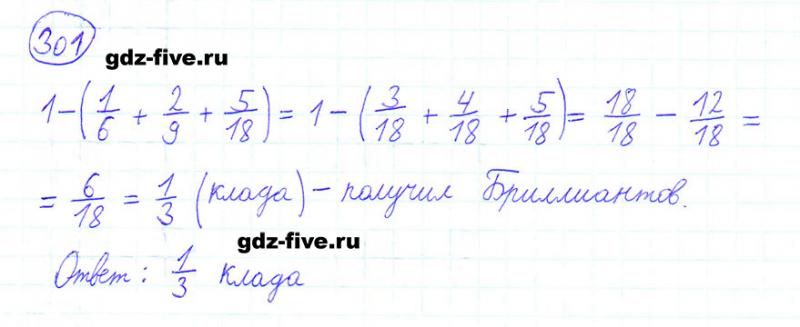 301
gdz-five.ru
1 - (1/6 + 2/9 + 5/18) = 1 - (3/18 + 4/18 + 5/18) = 18/18 - 12/18 =
= 6/18 = 1/3 (клада) - получил Бриллиантов.
gdz-five.ru
Ответ: 1/3 клада